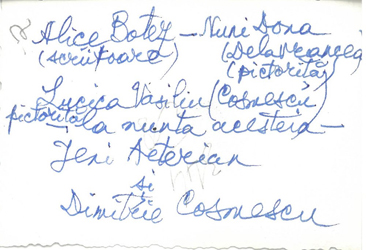 Alice Botez – Nuni Dona
(scriitoare) (Delavrancea
(pictoriță)
Lucica Vasiliu (Cosmescu)
pictoriță – la nunta acesteia –
Jeni Acterian
și
Dimitrie Cosmescu